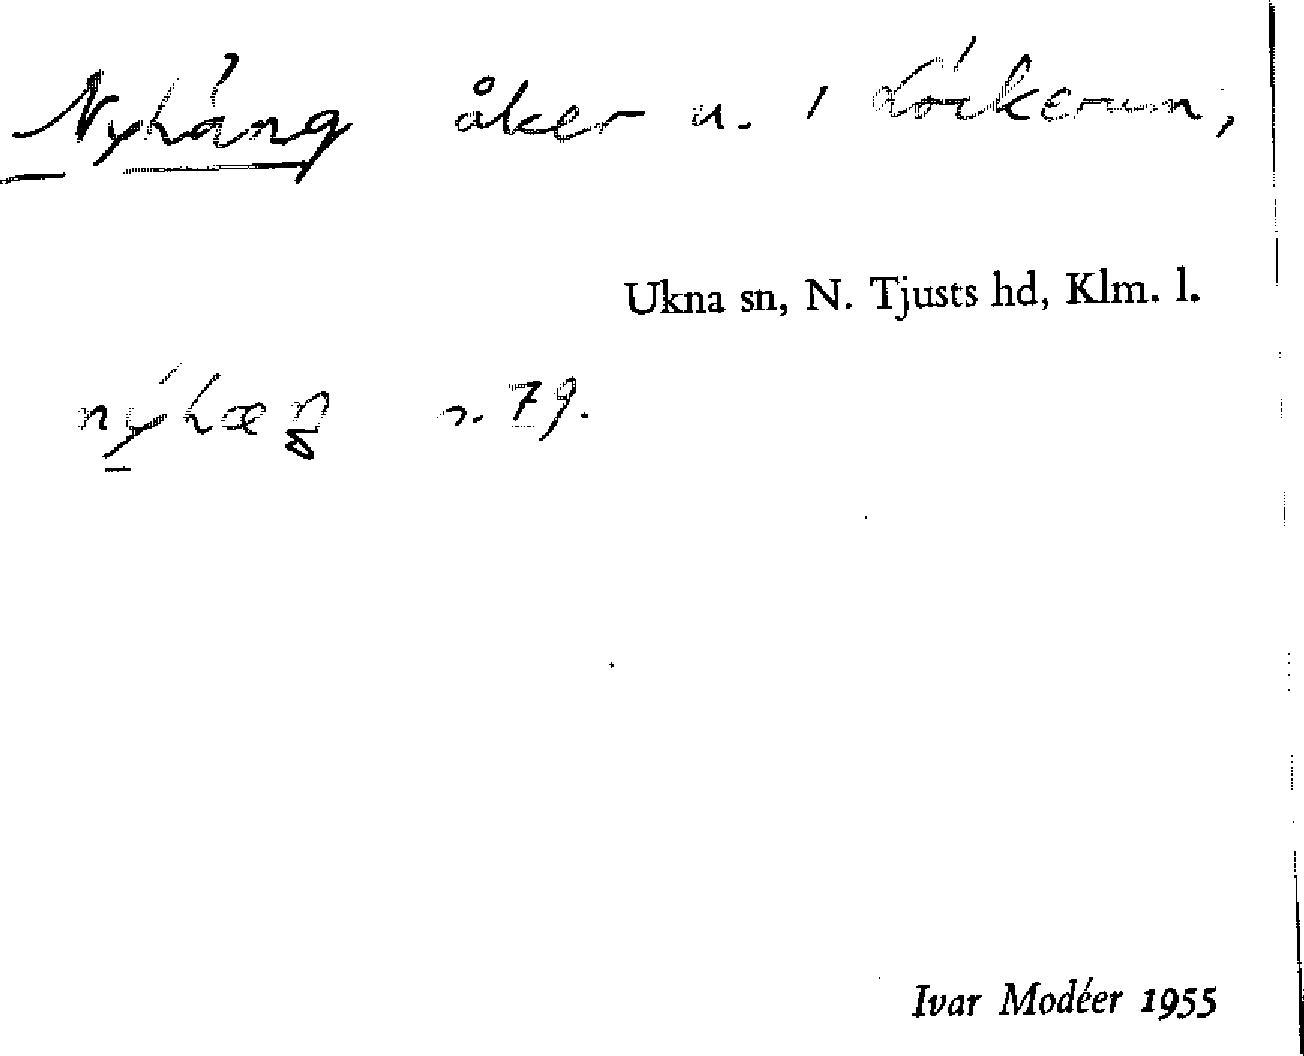 Nyhäng åker u. 1 Löckerum,
Ukna sn, N. Tjusts hd, Klm. l.
nýhæŋ 79.
Ivar Modéer 1955